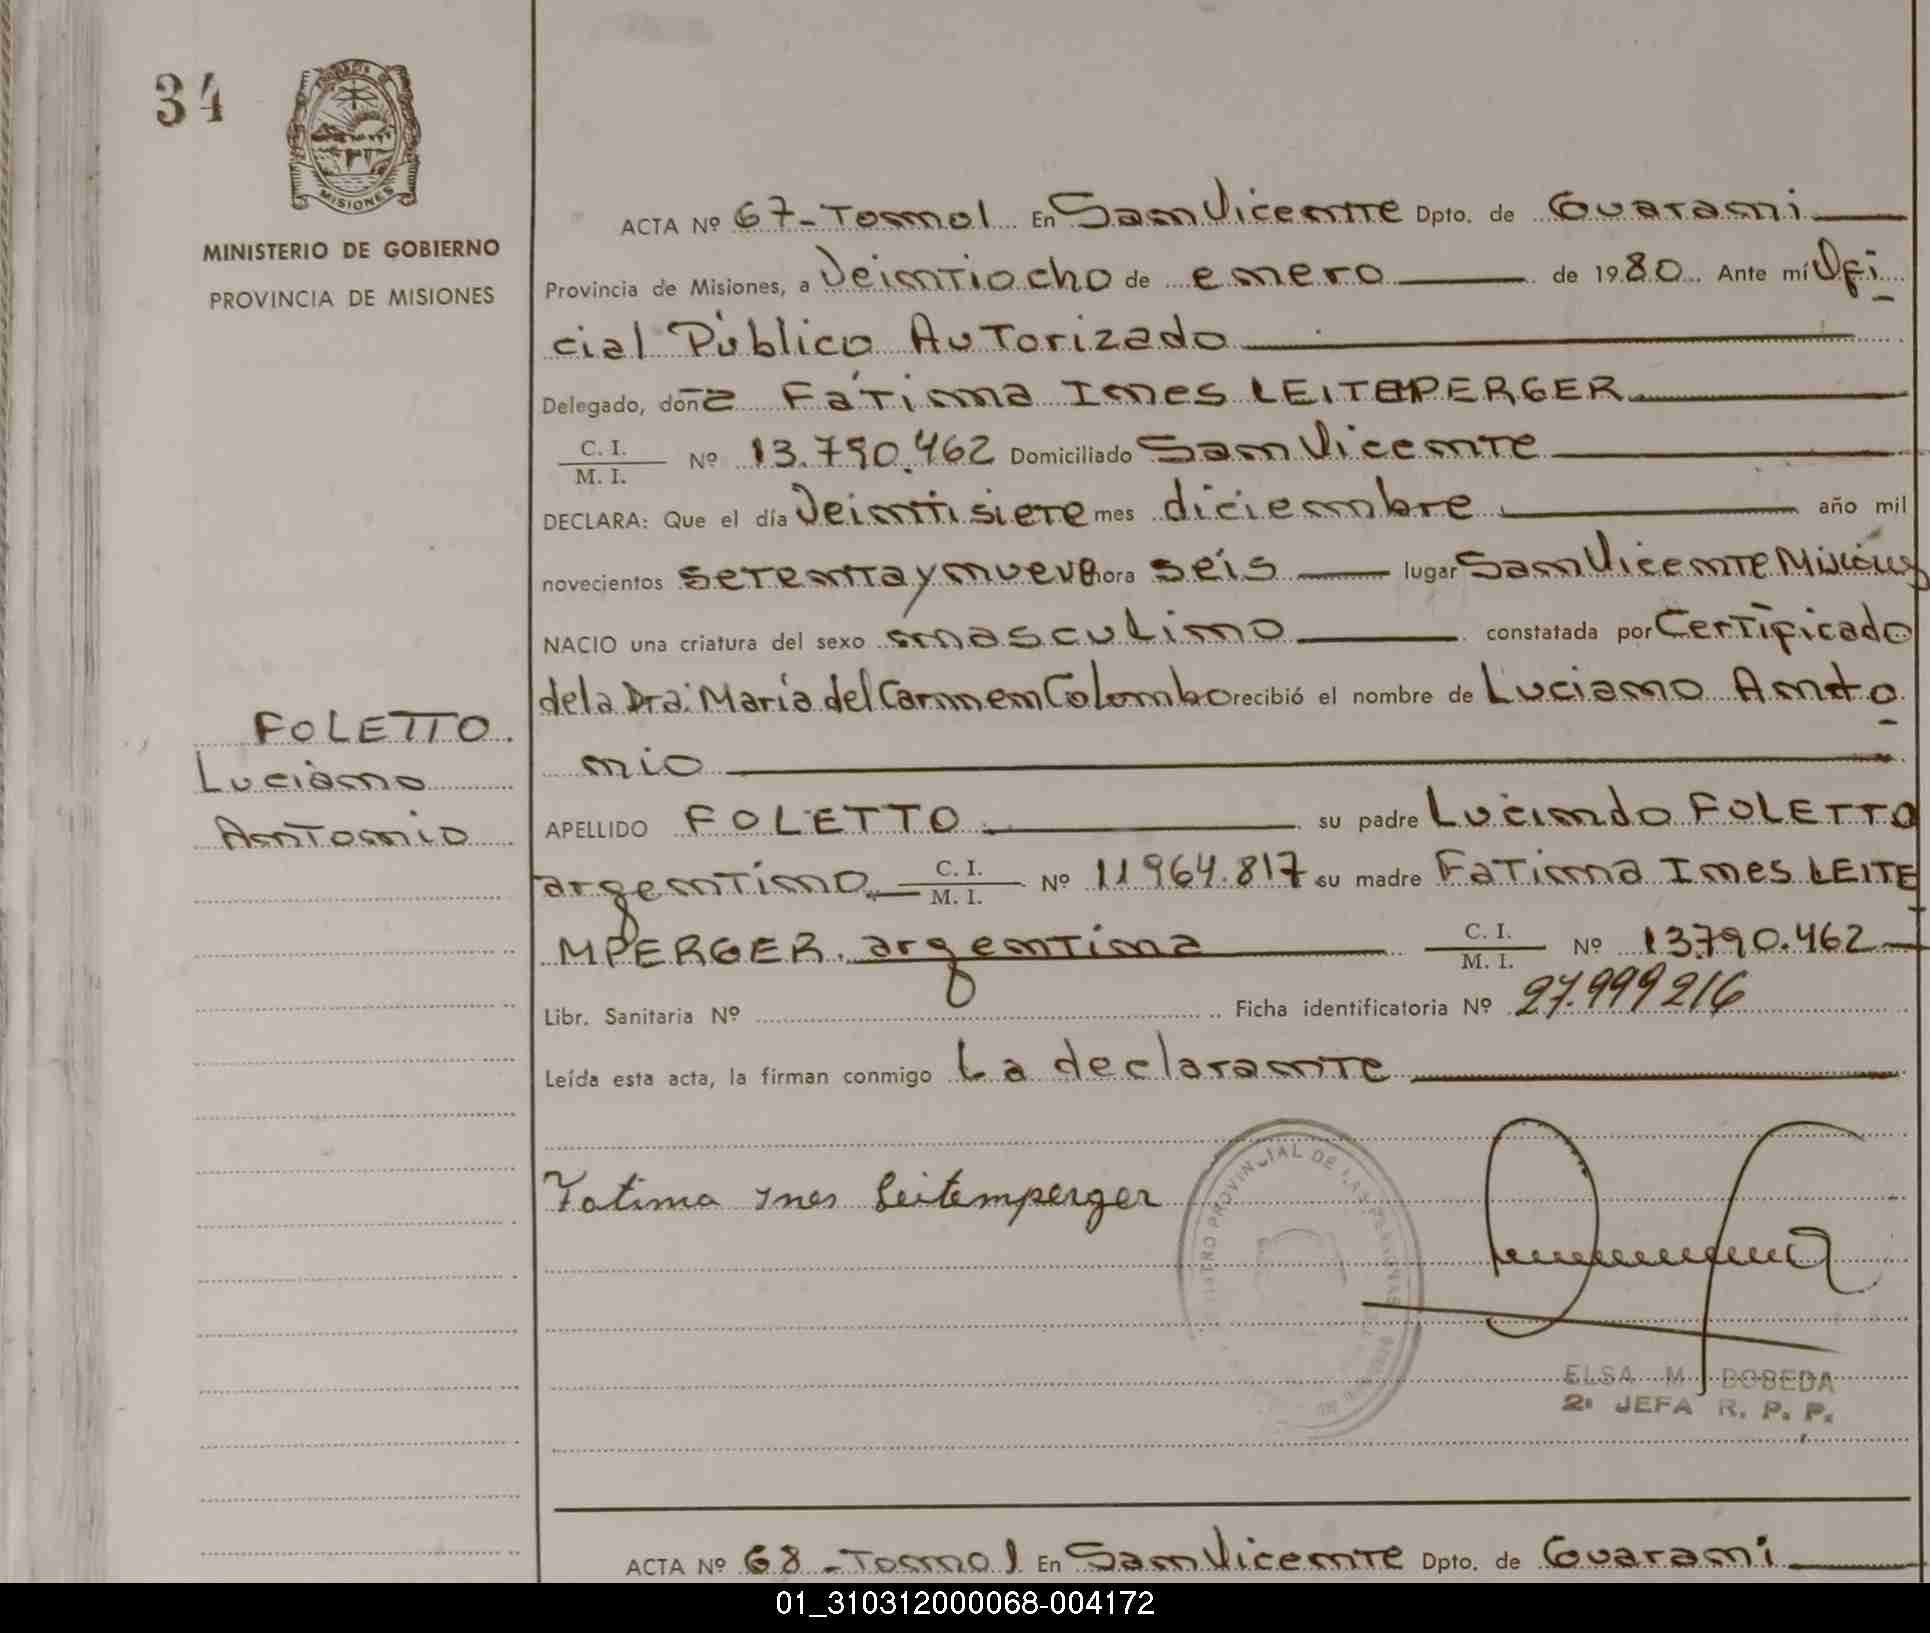 34
MISIONES
MINISTERIO DE GOBIERNO
PROVINCIA DE MISIONES
FOLETTO
Luciano
Antonio
ACTA Nº 67-Tomo I En San Vicente Dpto. de Guarani
Provincia de Misiones, a Veintiocho de enero de 1980. Ante mí Ofi
cial Público Autorizado
Delegado, doña Fátima Ines LEITEMPERGER
C. I. / M. I. Nº 13.790.462 Domiciliado San Vicente
DECLARA: Que el día Veintisiete mes diciembre año mil
novecientos setenta y nueve hora seis lugar San Vicente Misiones
NACIO una criatura del sexo masculino constatada por Certificado
de la Dra: María del Carmen Colombo recibió el nombre de Luciano Anto
nio
APELLIDO FOLETTO su padre Lucindo FOLETTO
argentino C. I. / M. I. Nº 11964.817 su madre Fatima Ines LEITE
MPERGER. argentina C. I. / M. I. Nº 13.790.462
Libr. Sanitaria Nº Ficha identificatoria Nº 27.999216
Leída esta acta, la firman conmigo La declarante
Fatima Ines Leitemperger
PROVINCIAL DE LAS PERSONAS
ELSA M. DOBEDA
2º JEFA R. P. P.
ACTA Nº 68-Tomo I En San Vicente Dpto. de Guarani
01_310312000068-004172